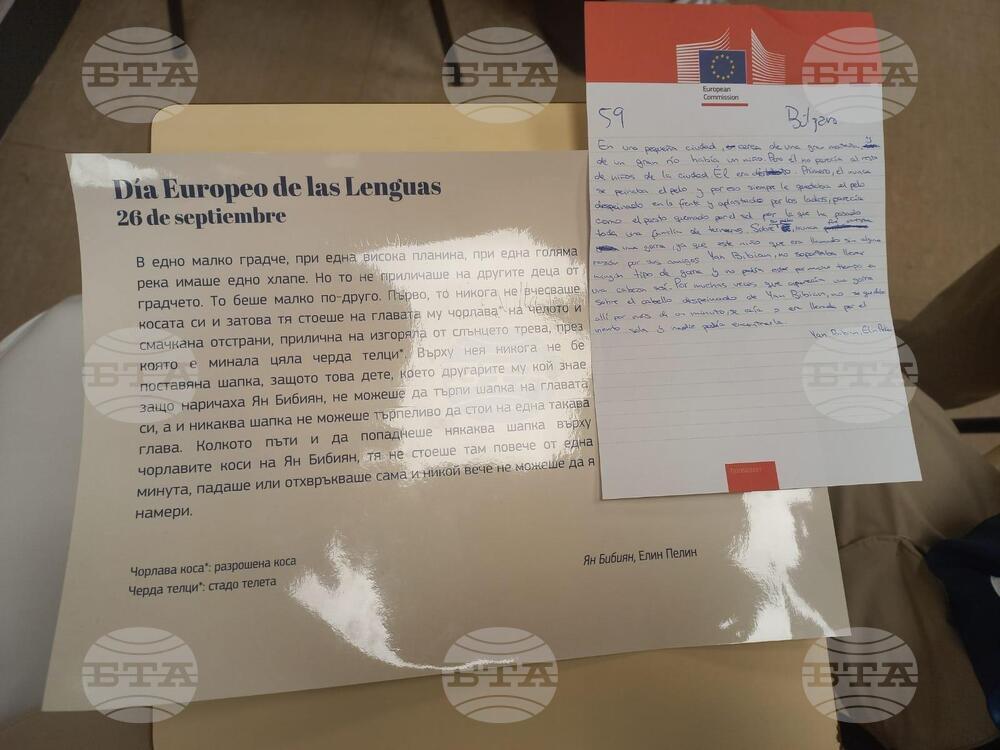 Día Europeo de las Lenguas
26 de septiembre
В едно малко градче, при една висока планина, при една голяма
река имаше едно хлапе. Но то не приличаше на другите деца от
градчето. То беше малко по-друго. Първо, то никога не вчесваше
косата си и затова тя стоеше на главата му чорлава* на челото и
смачкана отстрани, прилична на изгоряла от слънцето трева, през
която е минала цяла черда телци*. Върху нея никога не бе
поставяна шапка, защото това дете, което другарите му кой знае
защо наричаха Ян Бибиян, не можеше да търпи шапка на главата
си, а и никаква шапка не можеше търпеливо да стои на една такава
глава. Колкото пъти и да попаднеше някаква шапка върху
чорлавите коси на Ян Бибиян, тя не стоеше там повече от една
минута, падаше или отхвръкваше сама и никой вече не можеше да я
намери.
Чорлава коса*: разрошена коса
Черда телци*: стадо телета
Ян Бибиян, Елин Пелин
European
Commission
59
En una pequeña ciudad, cerca de una gran montaña y
de un gran río había un niño. Pero él no parecía al resto
de niños de la ciudad. Él era Primero, el nunca
se peinaba el pelo y por eso siempre le quedaba el pelo
despeinado en la frente y aplastado por los lados, parecía
como el pasto quemado por el sol por la que ha pasado
toda una familia de terneros. Sobre nunca
una gorra, ya que este niño que era llamado sin alguna
razón por sus amigos Yan Bibian, no soportaba llevar
ningún tipo de gorra y no podía estar por mucho tiempo a
una cabeza así. Por muchas veces que aparecía un gorro
sobre el cabello despeinado de Yan Bibian, no se quedaba
allí por más de un minuto, se caía o era llevada por el
viento sola y nadie podía encontrarla.
Yan Bibian, Elin Pelin
БТА
БТА
БТА
БТА
БТА
БТА
БТА
БТА
БТА